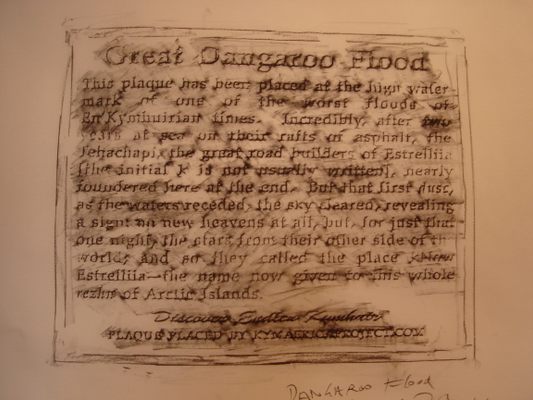 Great Dangaroo Flood
This plaque has been placed at the high water
mark of one of the worst floods of
En'Kymhuirian times. Incredibly, after two
years at sea on their rafts of asphalt, the
Tehachapi, the great road builders of Estrelliia
[the initial k is not usually written], nearly
foundered here at the end. But that first dusc,
as the waters receded, the sky cleared, revealing
a sight an new heavens at all, but, for just that
one night, the stars from their other side of th
world; and so they called the place
Estrelliia—the name now given to this whole
rezhn of Arctic Islands.
Discover
PLAQUE PLACED BY KYMAERICAPROJECT.COM
DANGAROO Flood